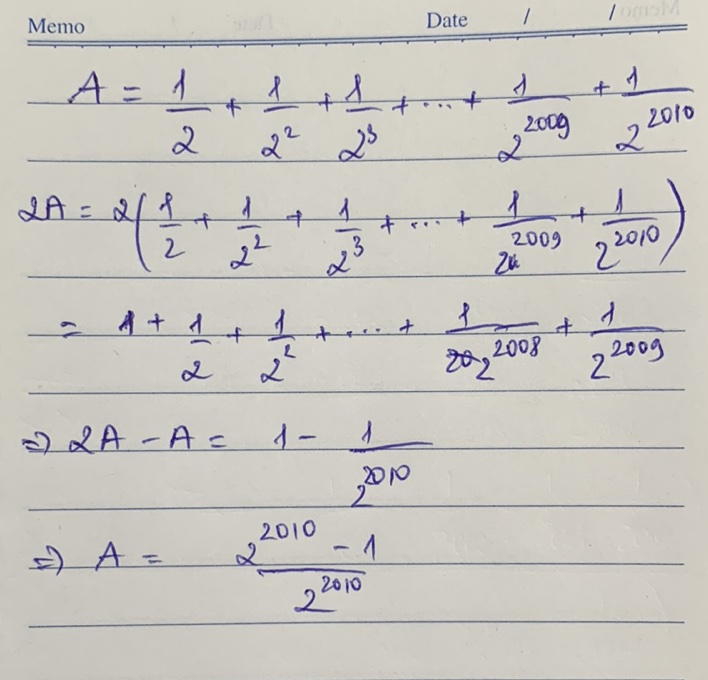 Memo Date / /
A = 1/2 + 1/2² + 1/2³ + ... + 1/2²⁰⁰⁹ + 1/2²⁰¹⁰
2A = 2(1/2 + 1/2² + 1/2³ + ... + 1/2²⁰⁰⁹ + 1/2²⁰¹⁰)
= 1 + 1/2 + 1/2² + ... + 1/2²⁰⁰⁸ + 1/2²⁰⁰⁹
⇒ 2A - A = 1 - 1/2²⁰¹⁰
⇒ A = (2²⁰¹⁰ - 1)/2²⁰¹⁰